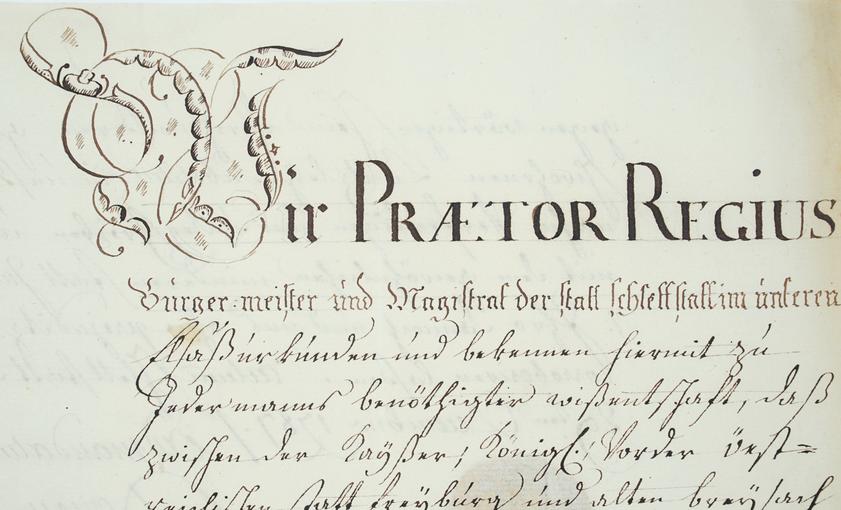 Wir PRÆTOR REGIUS
Bürger=meister und Magistrat der statt schlettstatt im unteren
Elsaß urkunden und bekennen hiermit zu
Jedermanns benöthigter wißentschaft, daß
zwischen der Kayßer; Königl: Vorder öest=
reichischen statt freyburg und alten breysach